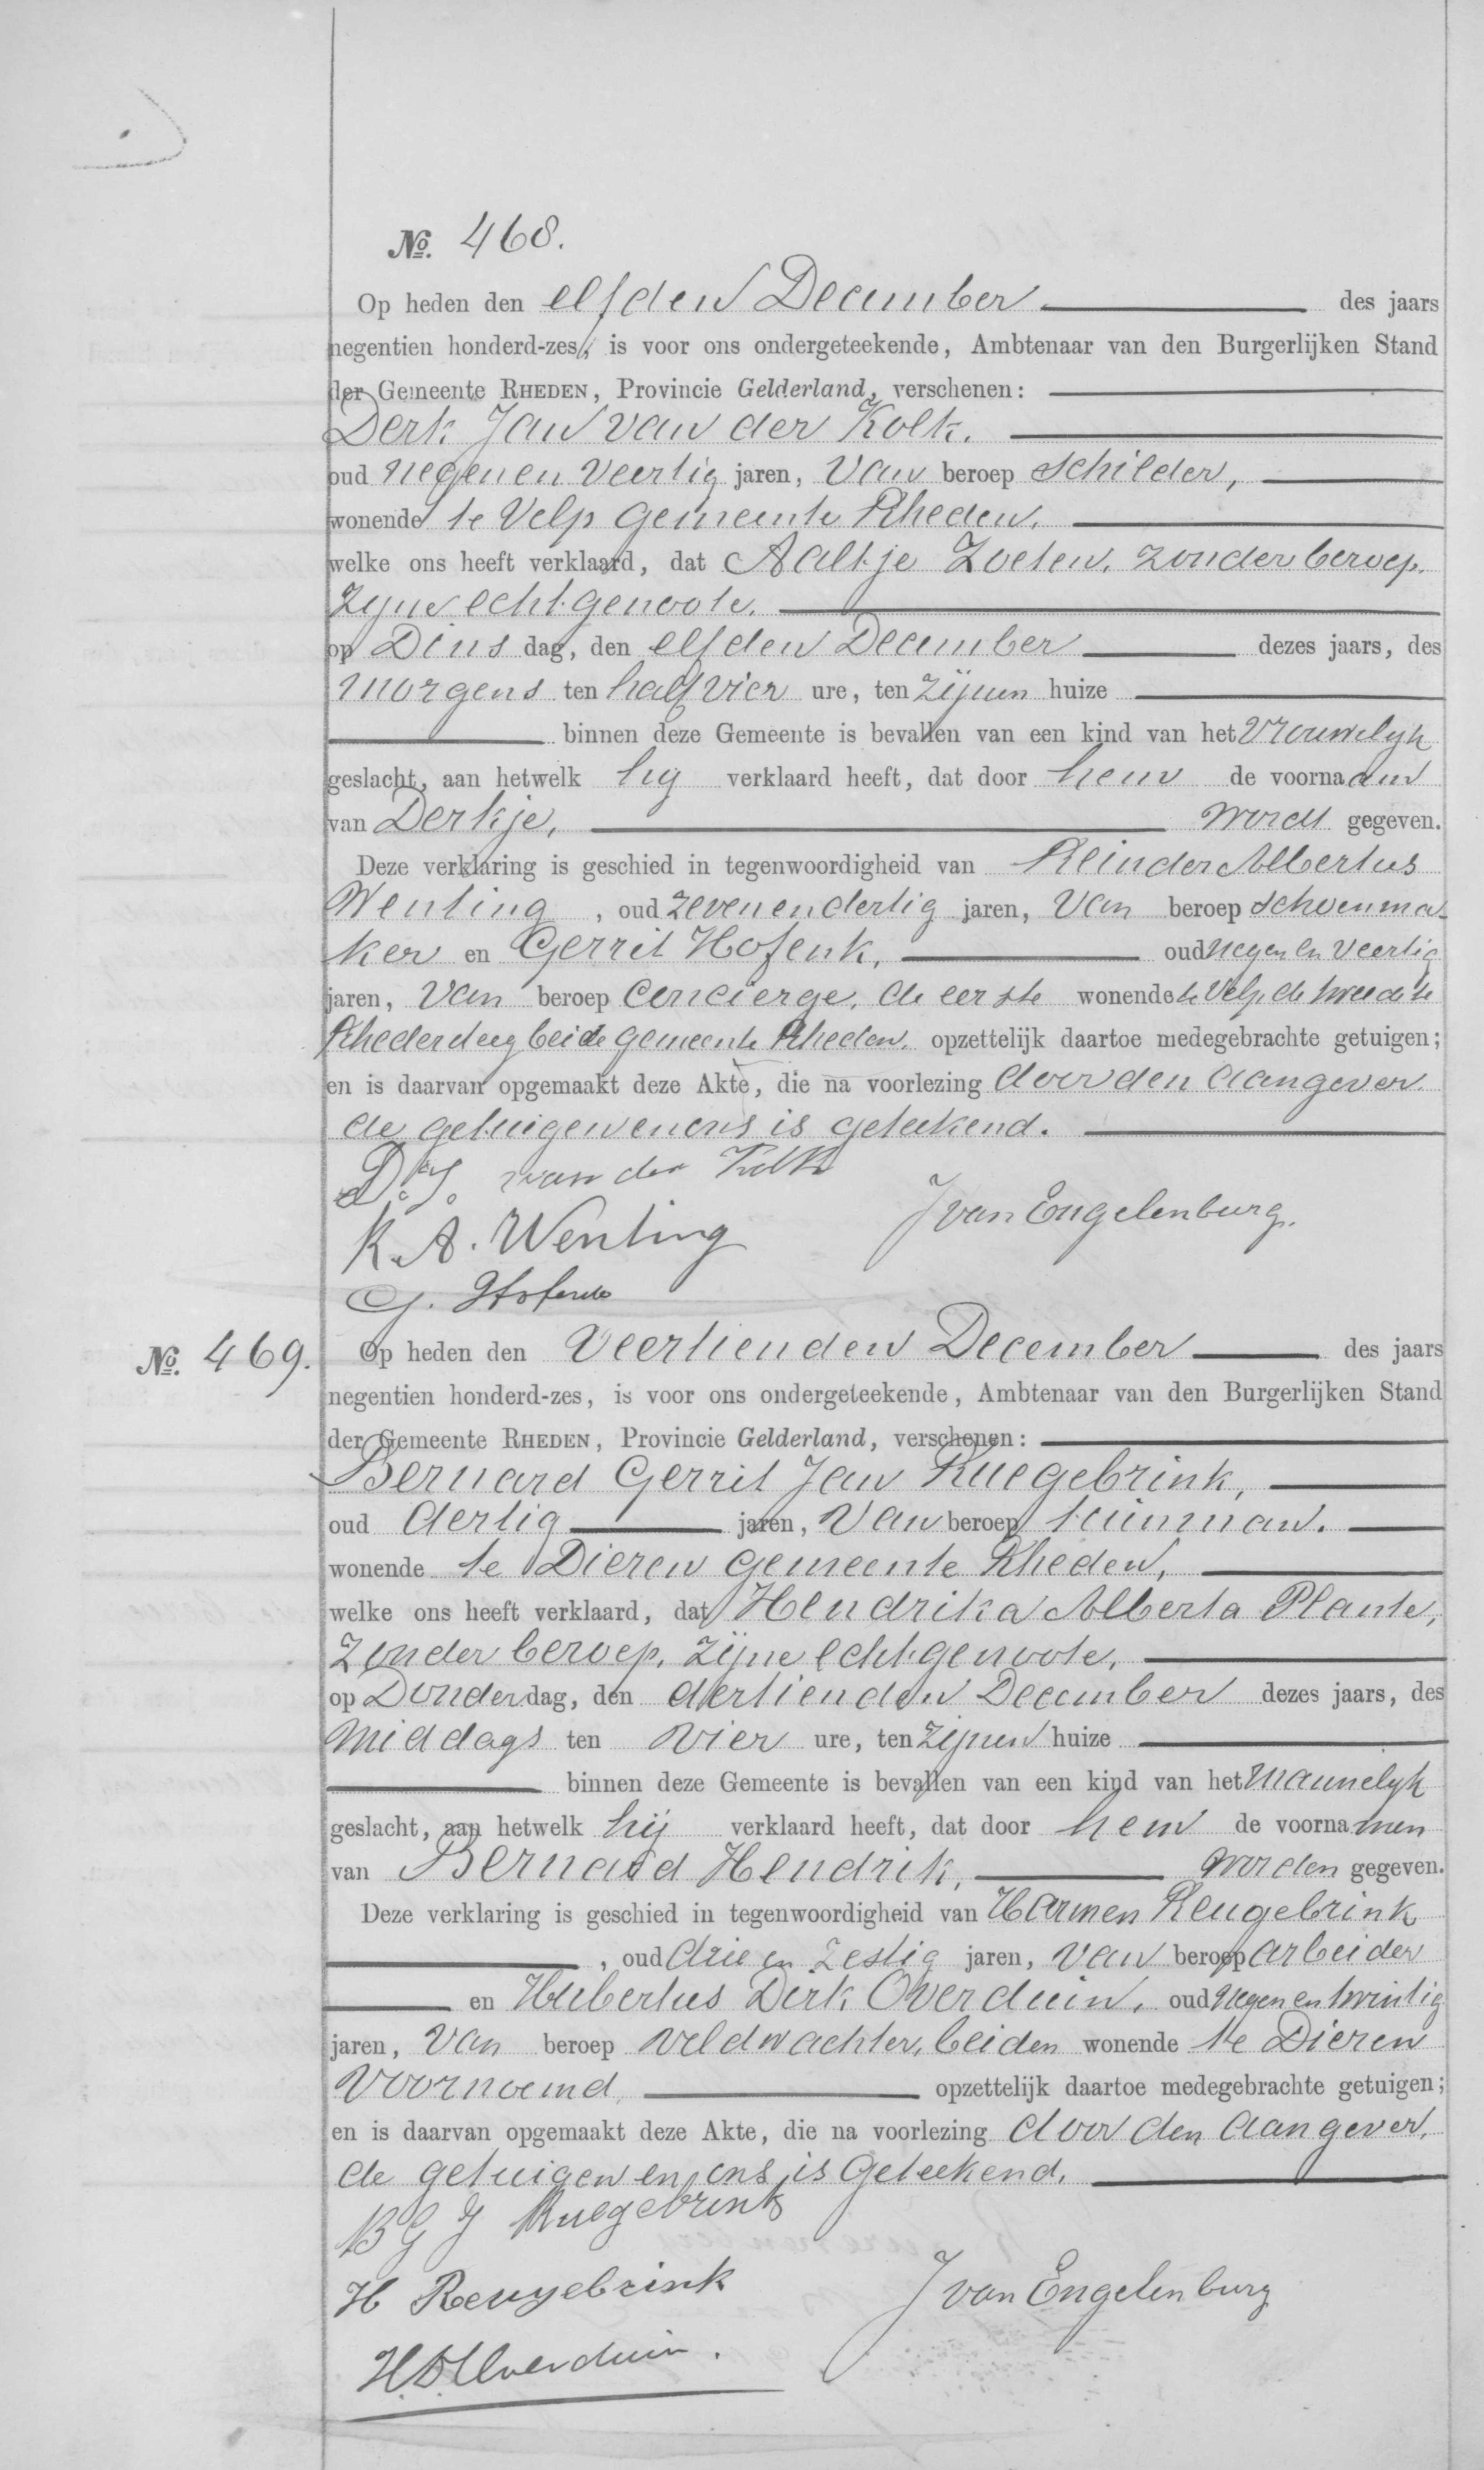 No. 468.
Op heden den elfden December des jaars
negentien honderd-zes, is voor ons ondergeteekende, Ambtenaar van den Burgerlijken Stand
der Gemeente RHEDEN, Provincie Gelderland, verschenen:
Derk Jan van der Kolk.
oud negenen veertig jaren, van beroep schilder,
wonende te Velp gemeente Rheden.
welke ons heeft verklaard, dat Aaltje Zoeten, zonder beroep.
zyne echtgenoote.
op Dinsdag, den elfden December dezes jaars, des
morgens ten half vier ure, ten zijnen huize
binnen deze Gemeente is bevallen van een kind van het vrouwelyk
geslacht, aan hetwelk hy verklaard heeft, dat door hem de voornaam
van Derkje, wordt gegeven.
Deze verklaring is geschied in tegenwoordigheid van Reinder Albertus
Wenting, oud zevenendertig jaren, van beroep schoenma-
ker en Gerrit Hofenk, oud negen en veertig
jaren, van beroep concierge, de eerste wonende te Velp de tweede te
Rhedersteeg beide gemeente Rheden. opzettelijk daartoe medegebrachte getuigen;
en is daarvan opgemaakt deze Akte, die na voorlezing door den aangever.
de getuigen en ons is geteekend.
D. J. van der Kolk
J van Engelenburg.
R. A. Wenting
G. Hofenk
No. 469.
Op heden den veertienden December des jaars
negentien honderd-zes, is voor ons ondergeteekende, Ambtenaar van den Burgerlijken Stand
der Gemeente RHEDEN, Provincie Gelderland, verschenen:
Bernard Gerrit Jan Ruegebrink,
oud dertig jaren, van beroep tuinman.
wonende te Dieren gemeente Rheden,
welke ons heeft verklaard, dat Hendrika Alberta Plante,
zonder beroep, zijne echtgenoote,
op Donderdag, den dertienden December dezes jaars, des
middags ten vier ure, ten zijnen huize
binnen deze Gemeente is bevallen van een kind van het mannelyk
geslacht, aan hetwelk hij verklaard heeft, dat door hem de voornamen
van Bernard Hendrik, worden gegeven.
Deze verklaring is geschied in tegenwoordigheid van Harmen Reugebrink
, oud drie en zestig jaren, van beroep arbeider
en Hubertus Dirk Overduin, oud negen en twintig
jaren, van beroep veldwachter, beiden wonende te Dieren
voornoemd opzettelijk daartoe medegebrachte getuigen;
en is daarvan opgemaakt deze Akte, die na voorlezing door den aangever,
de getuigen en ons is geteekend.
B G J Ruegebrink
H Reugebrink
J van Engelenburg
H.D. Overduin.